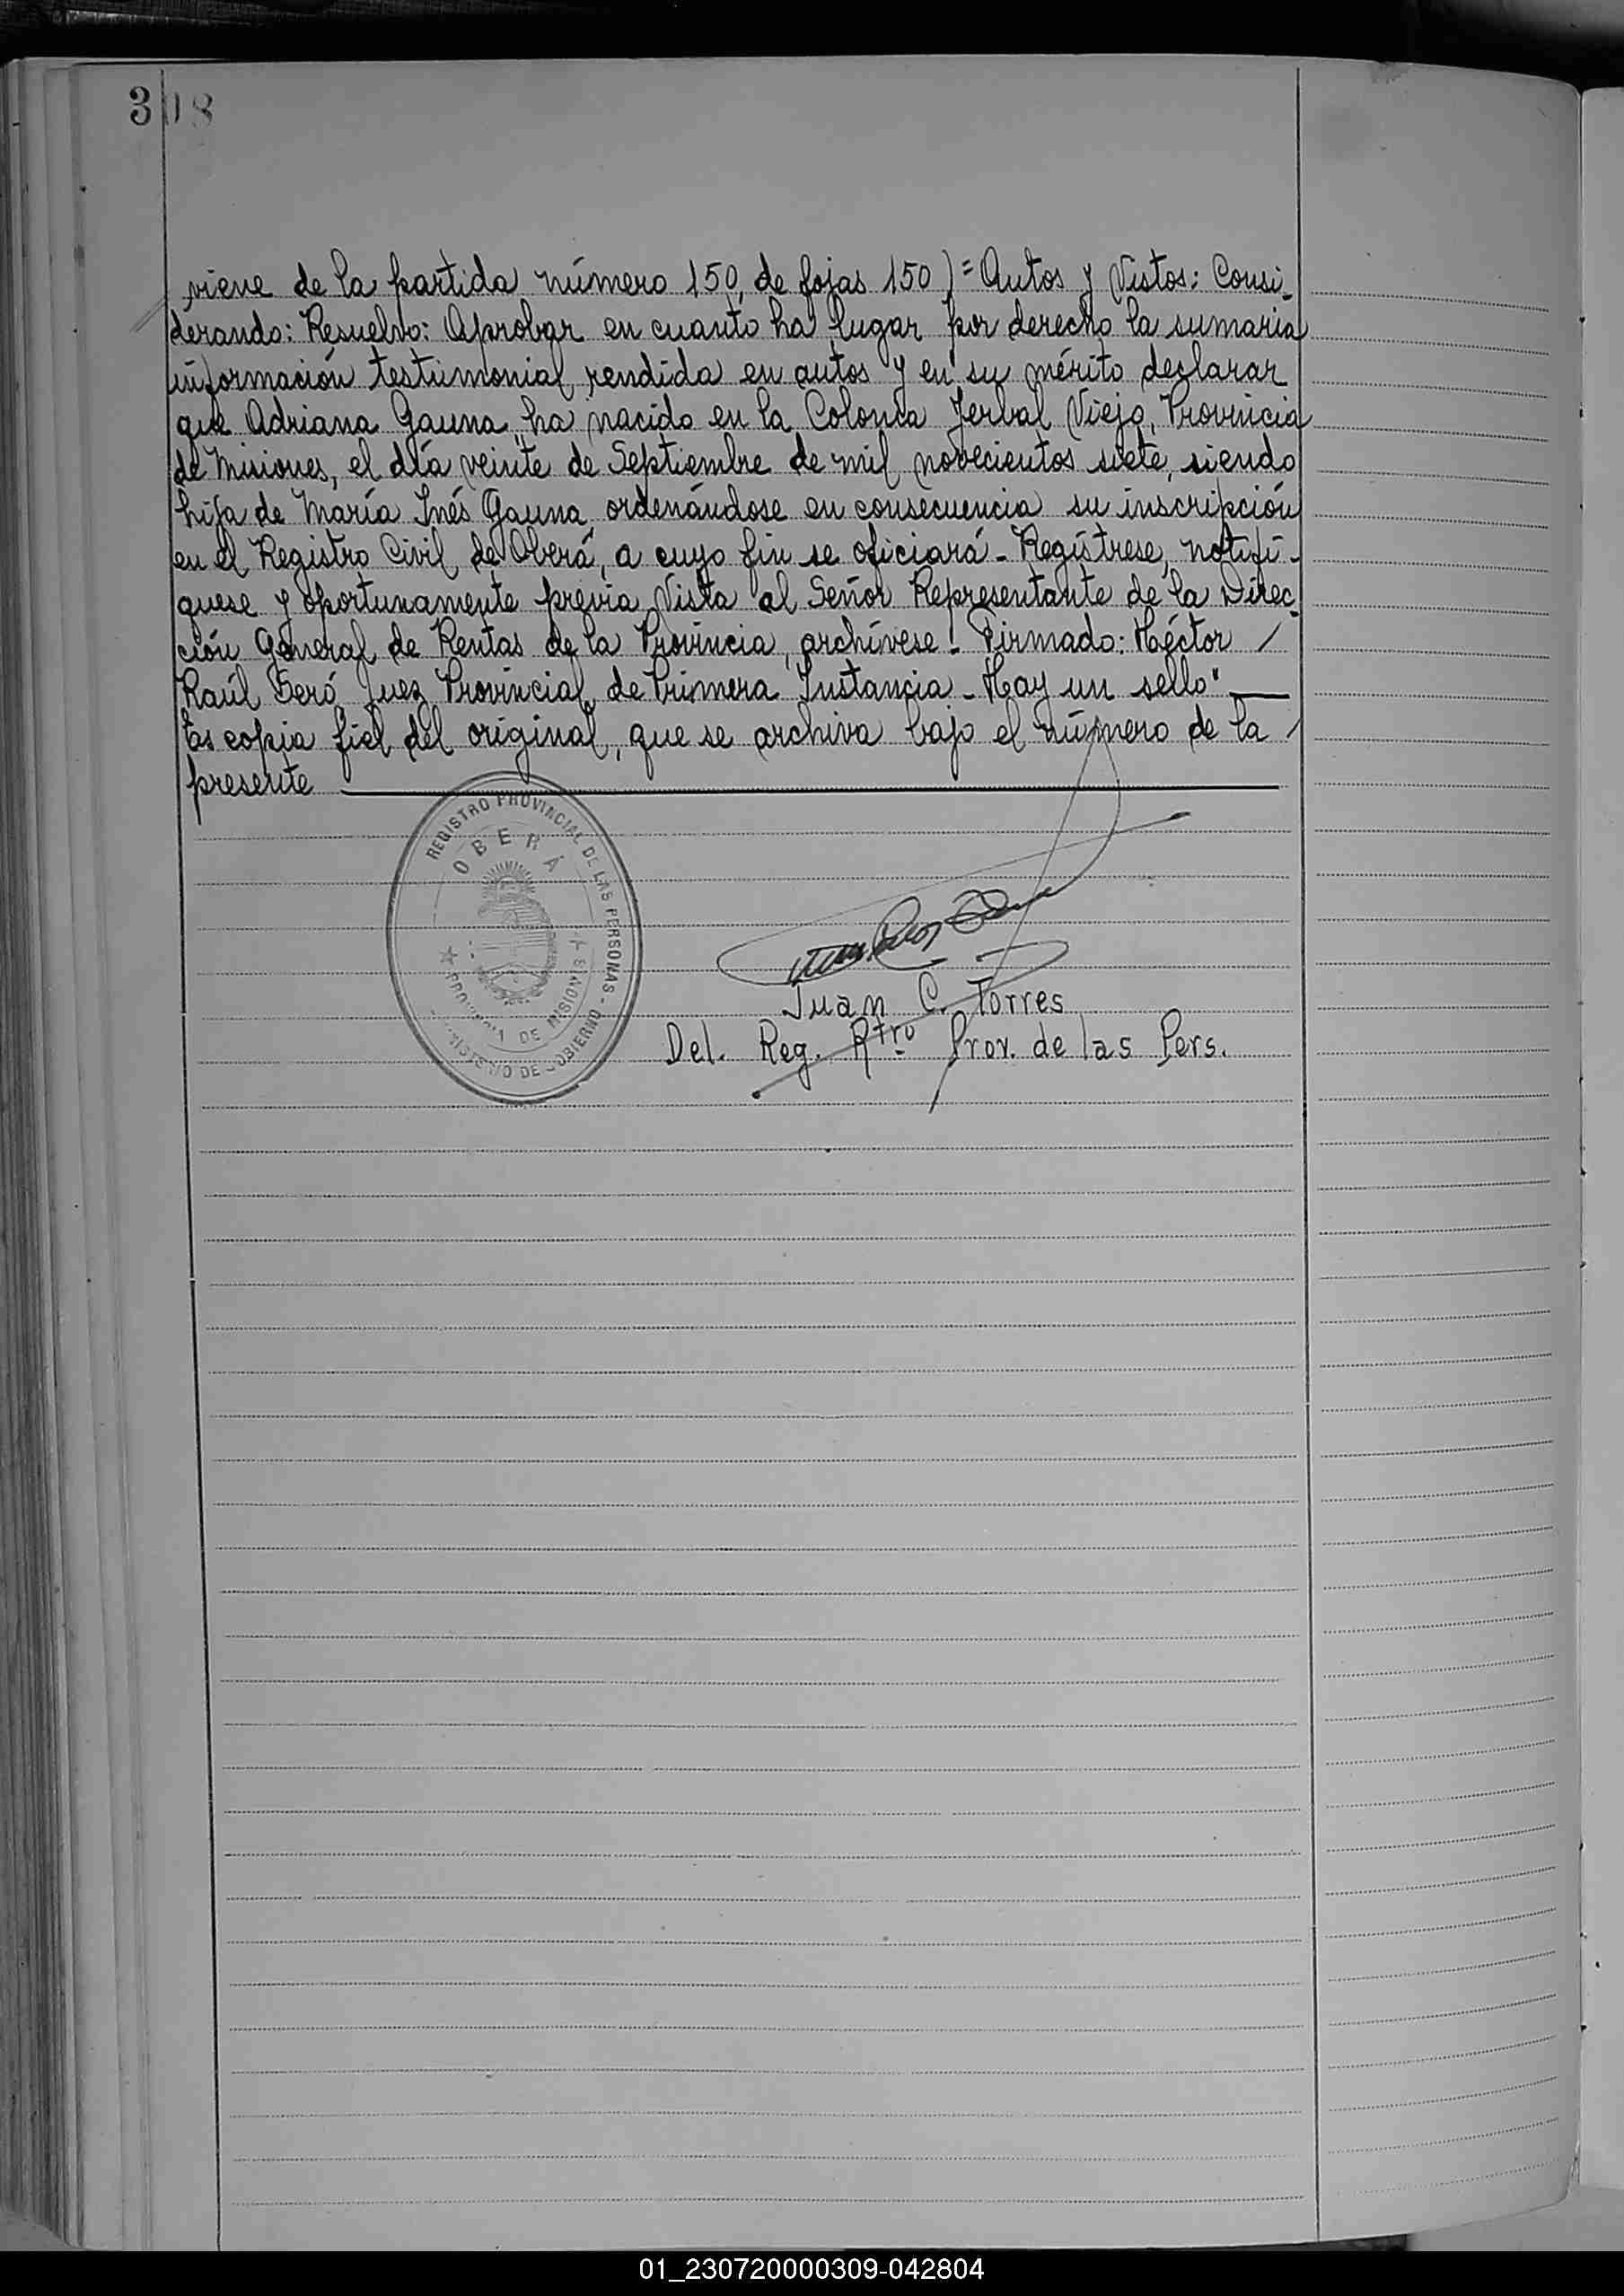 308
viene de la partida número 150, de fojas 150) = Autos y Vistos: Consi-
derando: Resuelvo: Aprobar en cuanto ha lugar por derecho la sumaria
información testimonial rendida en autos y en su mérito declarar
que Adriana Gauna, ha nacido en la Colonia Yerbal Viejo, Provincia
de Misiones, el día veinte de Septiembre de mil novecientos siete, siendo
hija de María Inés Gauna, ordenándose en consecuencia su inscripción
en el Registro Civil de Oberá, a cuyo fin se oficiará - Regístrese, notifí-
quese y oportunamente previa Vista al Señor Representante de la Direc-
ción General de Rentas de la Provincia, archívese - Firmado: Héctor /
Raúl Seró, Juez Provincial de Primera Instancia - Hay un sello"
Es copia fiel del original, que se archiva bajo el número de la /
presente
REGISTRO PROVINCIAL DE LAS PERSONAS - MINISTERIO DE GOBIERNO
OBERÁ
PROVINCIA DE MISIONES
Juan C. Torres
Del. Reg. Rtro Prov. de las Pers.
01_230720000309-042804